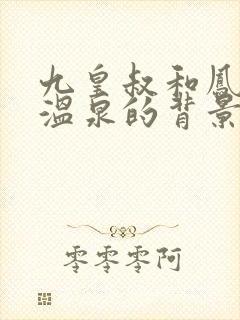 九皇叔和凤
温泉的背景
零零零阿